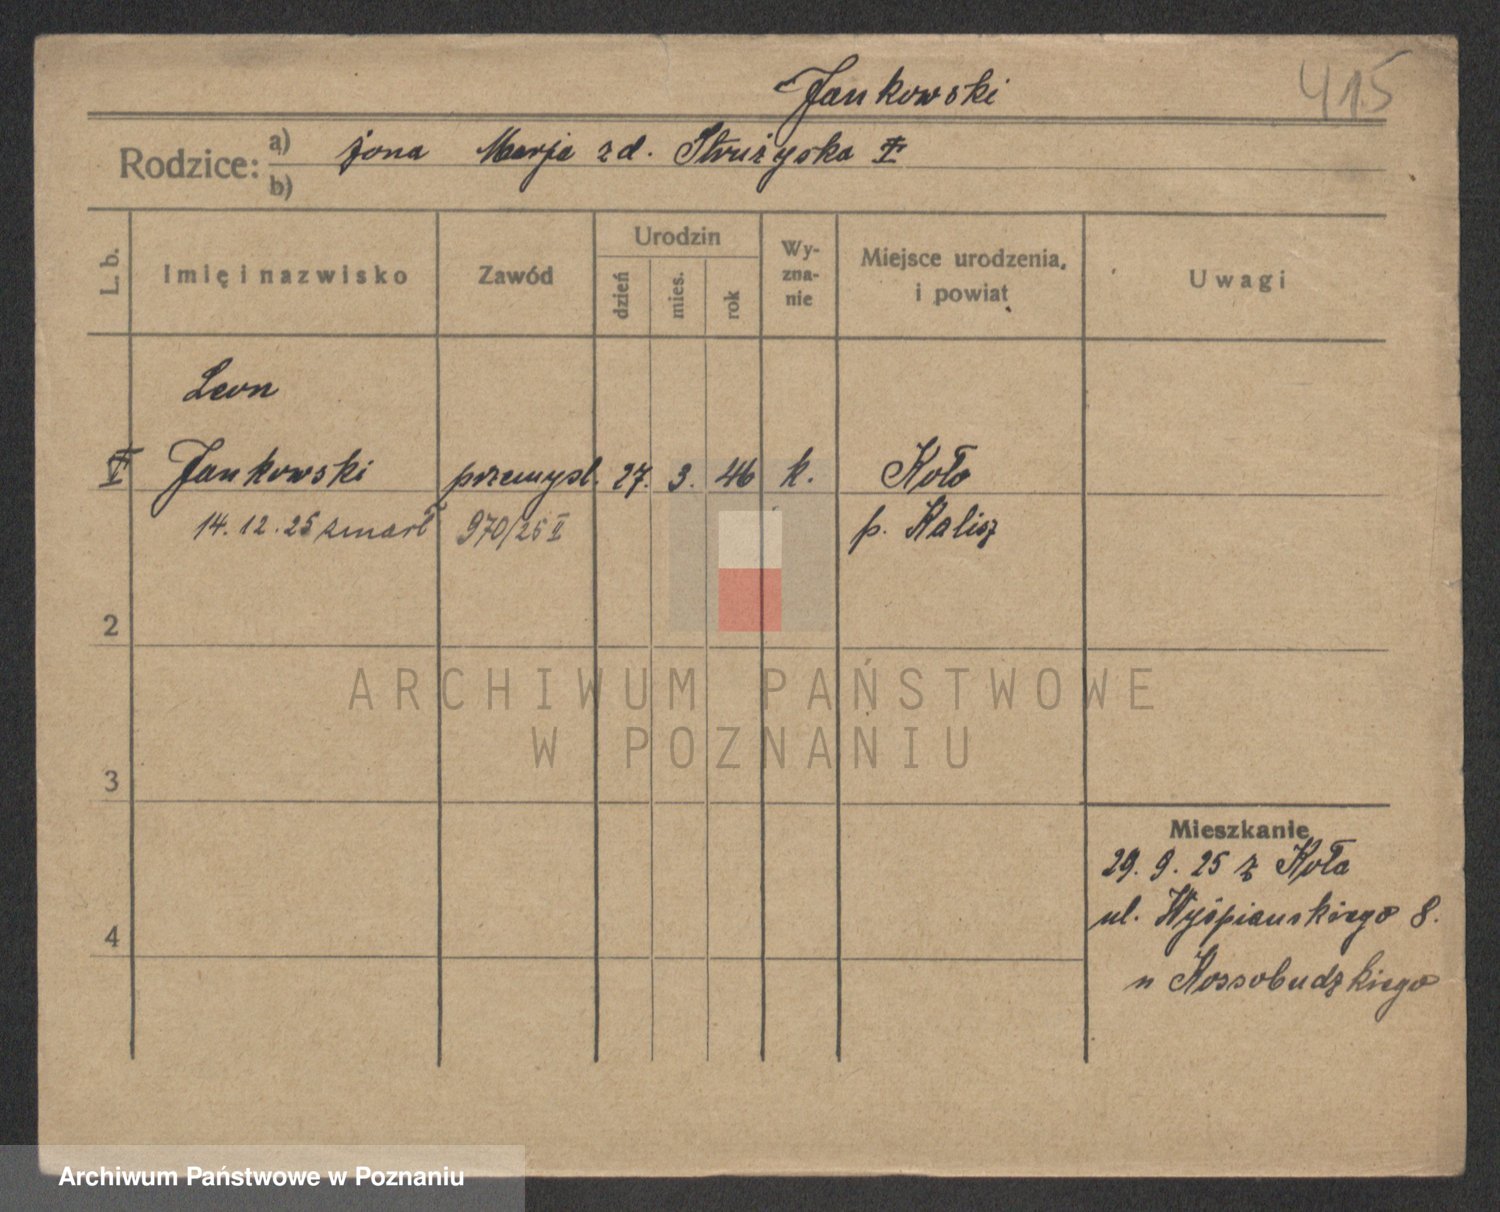 Jankowski
415
Rodzice:
a) żona Marja zd. Strużyska
b)
L. b.
Imię i nazwisko
Zawód
Urodzin
dzień
mies.
rok
Wy-
zna-
nie
Miejsce urodzenia,
i powiat
Uwagi
Leon
Jankowski przemysł. 27. 3. 46 k. Koło
14. 12. 25 zmarł 970/25 II p. Kalisz
2
3
4
Mieszkanie
29. 9. 25 z Koła
ul. Wyśpianskiego 8.
u Kossobudzkiego
ARCHIWUM PAŃSTWOWE
W POZNANIU
Archiwum Państwowe w Poznaniu